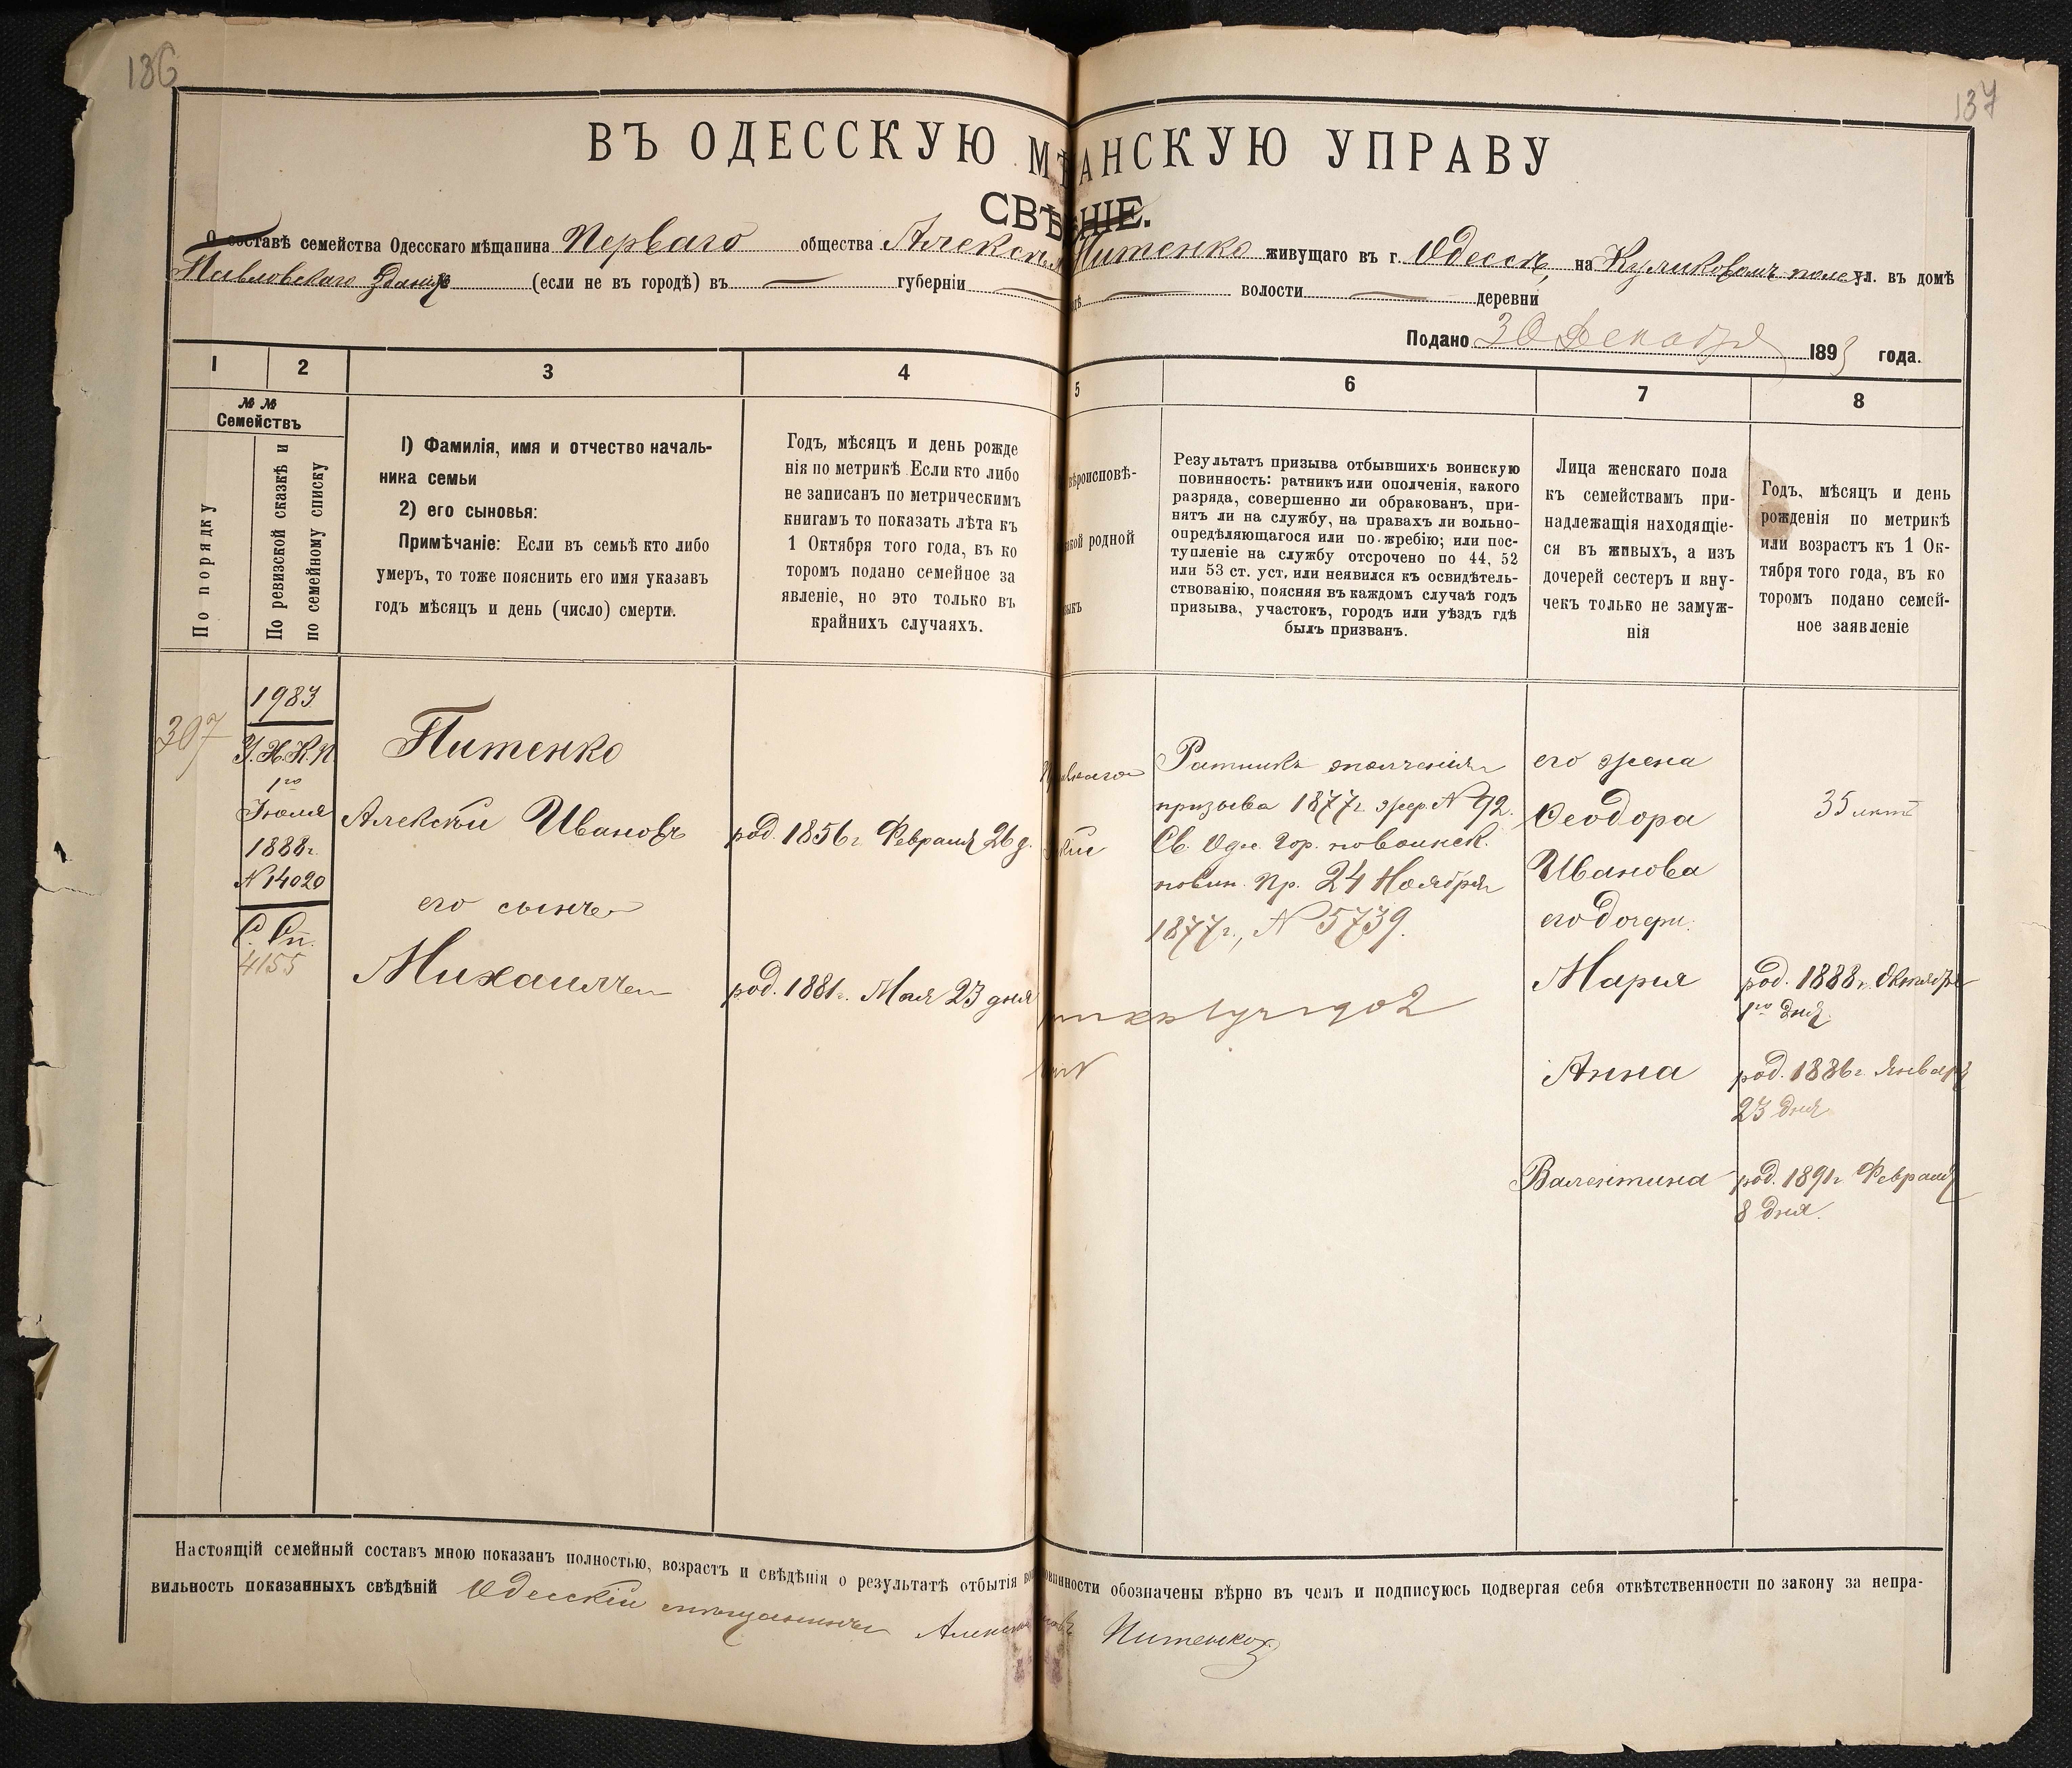 136
137
ВЪ ОДЕССКУЮ МѢ АНСКУЮ УПРАВУ
СВѢ НІЕ.
О составѣ семейства Одесскаго мѣщанина Перваго общества Алексѣя Питенко живущаго въ г. Одессѣ, на Куликовомъ поле ул. въ домѣ
Павловскаго Зданія (если не въ городѣ) въ — губерніи — — волости — деревни
Подано 30 Декабря 1893 года.
1 2 3 4 5 6 7 8
№ №
Семействъ
По порядку
По ревизской сказкѣ и
по семейному списку
1) Фамилія, имя и отчество началь-
ника семьи
2) его сыновья:
Примѣчаніе: Если въ семьѣ кто либо
умеръ, то тоже пояснить его имя указавъ
годъ мѣсяцъ и день (число) смерти.
Годъ, мѣсяцъ и день рожде
нія по метрикѣ. Если кто либо
не записанъ по метрическимъ
книгамъ то показать лѣта къ
1 Октября того года, въ ко
торомъ подано семейное за
явленіе, но это только въ
крайнихъ случаяхъ.
ѣроисповѣ-
кой родной
зыкъ
Результатъ призыва отбывшихъ воинскую
повинность: ратникъ или ополченія, какого
разряда, совершенно ли обракованъ, при-
нятъ ли на службу, на правахъ ли вольно-
опредѣляющагося или по жребію; или пос-
тупленіе на службу отсрочено по 44, 52
или 53 ст. уст. или неявился къ освидѣтель-
ствованію, поясняя въ каждомъ случаѣ годъ
призыва, участокъ, городъ или уѣздъ гдѣ
былъ призванъ.
Лица женскаго пола
къ семействамъ при-
надлежащія находящіе-
ся въ живыхъ, а изъ
дочерей сестеръ и вну-
чекъ только не замуж-
нія
Годъ, мѣсяцъ и день
рожденія по метрикѣ
или возрастъ къ 1 Ок-
тября того года, въ ко
торомъ подано семей-
ное заявленіе
307
1983
У.Х.К.П.
1го
Іюля
1888г.
№ 14020
С. Сп.
4155
Питенко
Алексѣй Ивановъ
его сынъ
Михаилъ
род. 1856г. Февраля 26 д.
род. 1881г. Мая 23 дня
Ратникъ ополченія
призыва 1877г. жер. № 92.
Св. Одес. Гор. по воинск.
повин. Пр. 24 Ноября
1877г., № 5739.
его жена
Ѳеодора
Иванова
его дочери:
Марія
Анна
Валентина
35 лѣтъ
род. 1888г. Октября
1го дня.
род. 1886г. Января
23 дня
род. 1891г. Февраля
8 дня.
Настоящій семейный составъ мною показанъ полностью, возрастъ и свѣдѣнія о результатѣ отбытія во овинности обозначены вѣрно въ чемъ и подписуюсь подвергая себя отвѣтственности по закону за непра-
вильность показанныхъ свѣдѣній Одесскій мѣщанинъ Алексѣй Питенко